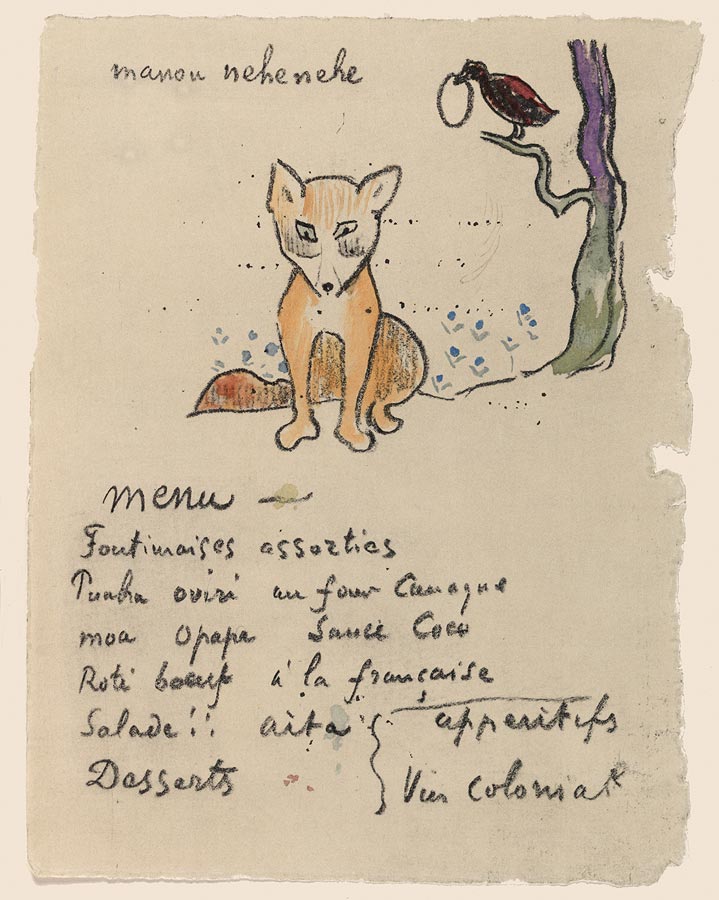 manou nehenehe
menu
Foutimaises assorties
Puaha oviri au four Canaque
moa Opapa Sauce Coco
Roti boeuf à la française
Salade!! aita
Desserts
apperitifs
Vin colonial